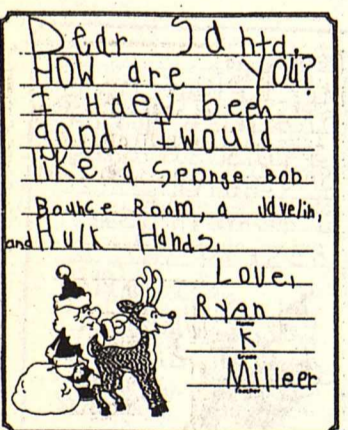 Dear Santa,
How are You?
I Haev been
good. I would
like a Sponge Bob
Bounce Room, a Javelin,
and Hulk Hands.
Love,
Ryan
Name
K
Grade
Milleer
Teacher